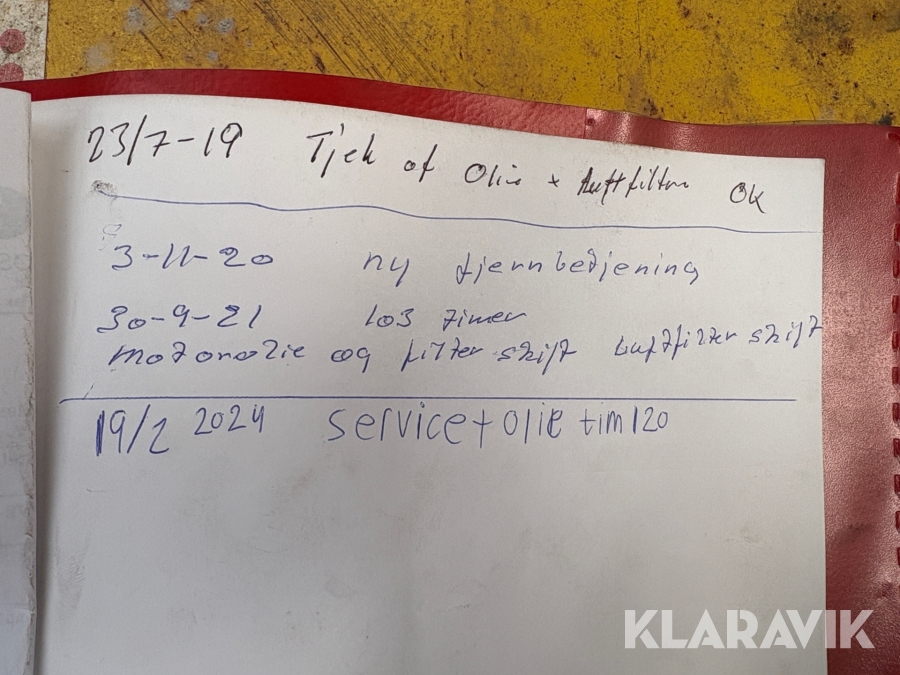 23/7-19 Tjek af Olie + Luftfilter OK
3-11-20 ny fjernbetjening
30-9-21 103 timer
motorolie og filter skift Luftfilter skift
19/2 2024 service + olie tim 120
KLARAVIK